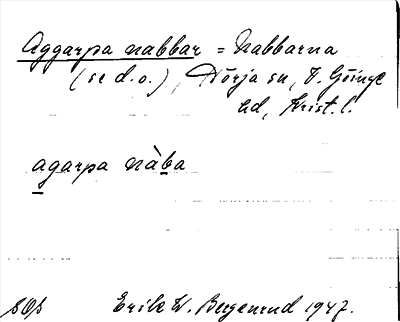 Aggarpa nabbar = Nabbarna
(se d.o.), Nörja sn, V. Göinge
hd, Krist. l.
agarpa nàba
sOp Erik W. Bergenrud 1947.